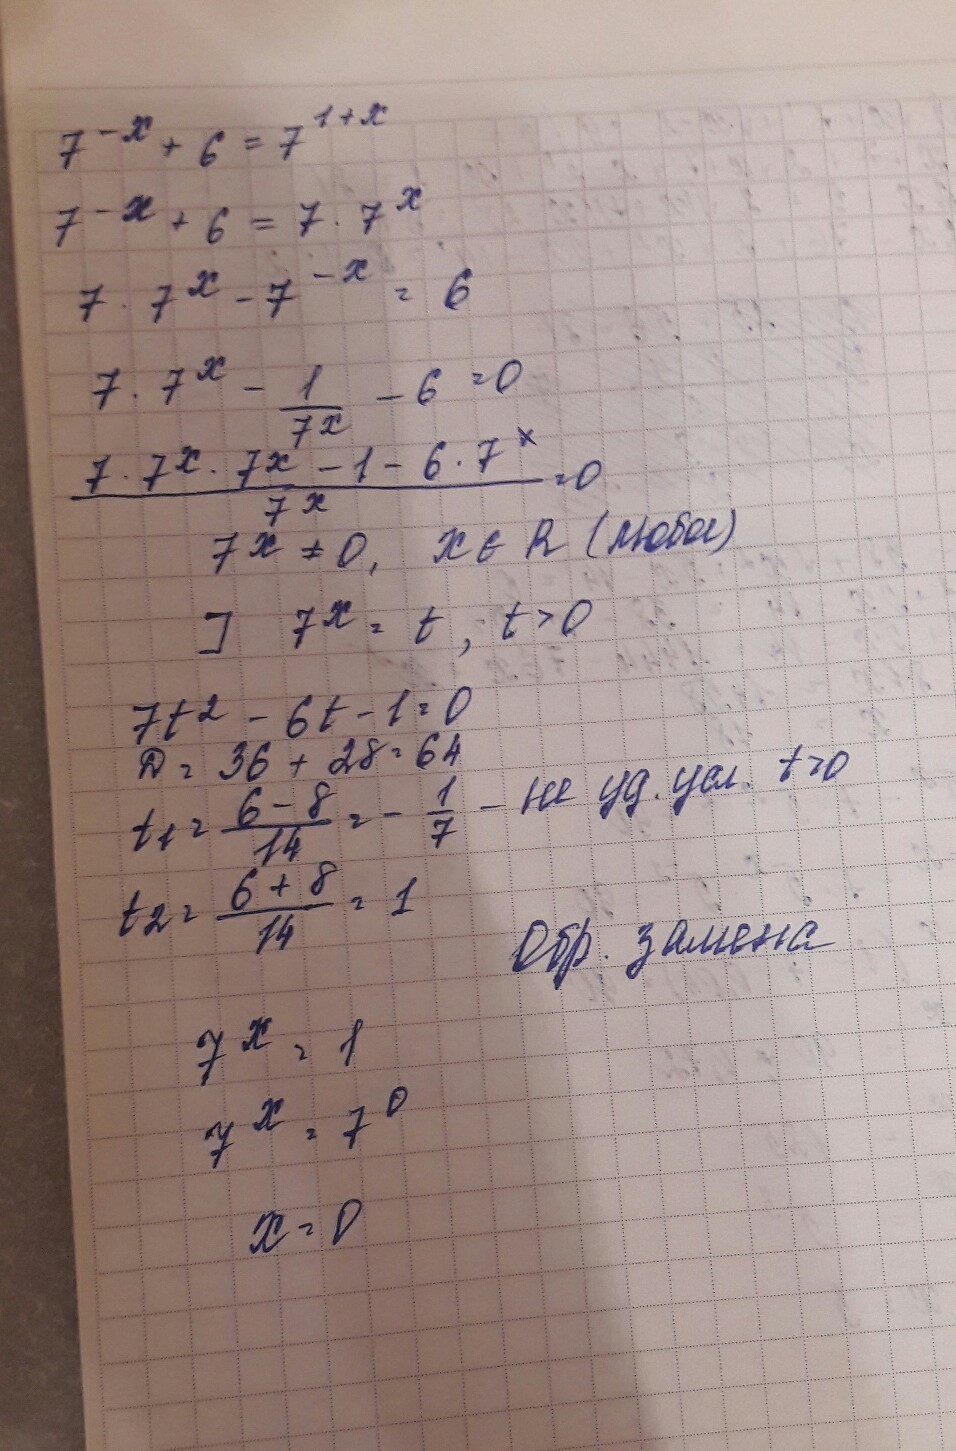 7^{-x} + 6 = 7^{1+x}
7^{-x} + 6 = 7 · 7^x
7 · 7^x - 7^{-x} = 6
7 · 7^x - \frac{1}{7^x} - 6 = 0
\frac{7 · 7^x · 7^x - 1 - 6 · 7^x}{7^x} = 0
7^x ≠ 0, x ∈ R (любое)
] 7^x = t, t > 0
7t^2 - 6t - 1 = 0
D = 36 + 28 = 64
t_1 = \frac{6-8}{14} = -\frac{1}{7} - не уд. усл. t>0
t_2 = \frac{6+8}{14} = 1
Обр. замена
7^x = 1
7^x = 7^0
x = 0